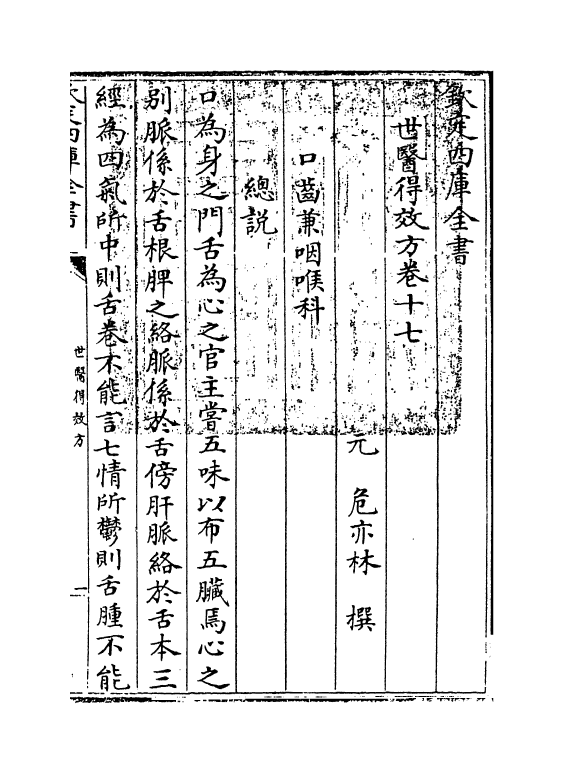 欽定四庫全書
世醫得效方卷十七
元 危亦林 撰
口齒兼咽喉科
總說
口為身之門舌為心之官主嘗五味以布五臟焉心之
別脈係於舌根脾之絡脈係於舌傍肝脈絡於舌本三
經為四氣所中則舌卷不能言七情所鬱則舌腫不能
欽定四庫全書
世醫得效方
一